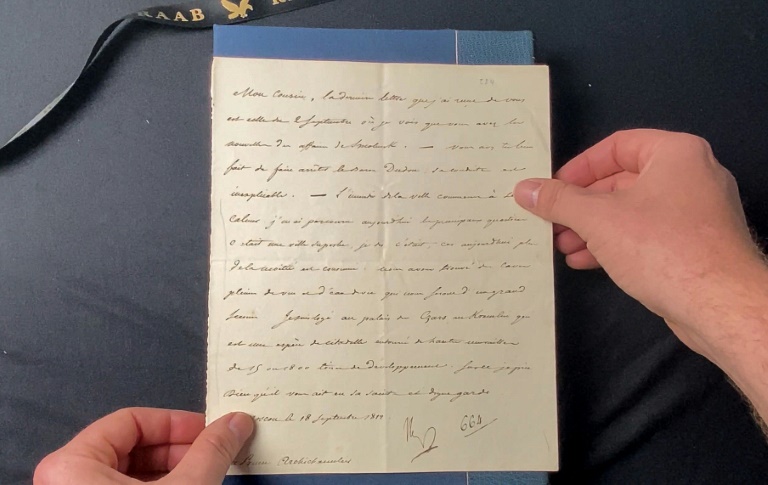 RAAB
Mon Cousin, la dernière lettre que j'ai reçue de vous
est celle du 2 Septembre où je vois que vous avez les
nouvelles des affaires de Smolensk. — vous avez très bien
fait de faire arrêter le Sieur Dudon sa conduite est
inexplicable. — L'incendie de la ville commence à se
calmer j'ai parcouru aujourd'hui les principaux quartiers
c'était une ville superbe, je dis c'était, car aujourd'hui plus
de la moitié est consumée. nous avons trouvé des caves
pleines de vin et d'eau de vie qui nous seront d'un grand
secours. Je suis logé au palais des Czars au Kremlin qui
est une espèce de citadelle entourée de hautes murailles
de 15 ou 1800 toises de développement. Sur ce je prie
Dieu qu'il vous ait en sa sainte et digne garde
Moscou le 18 Septembre 1812
664
Prince Archichancelier